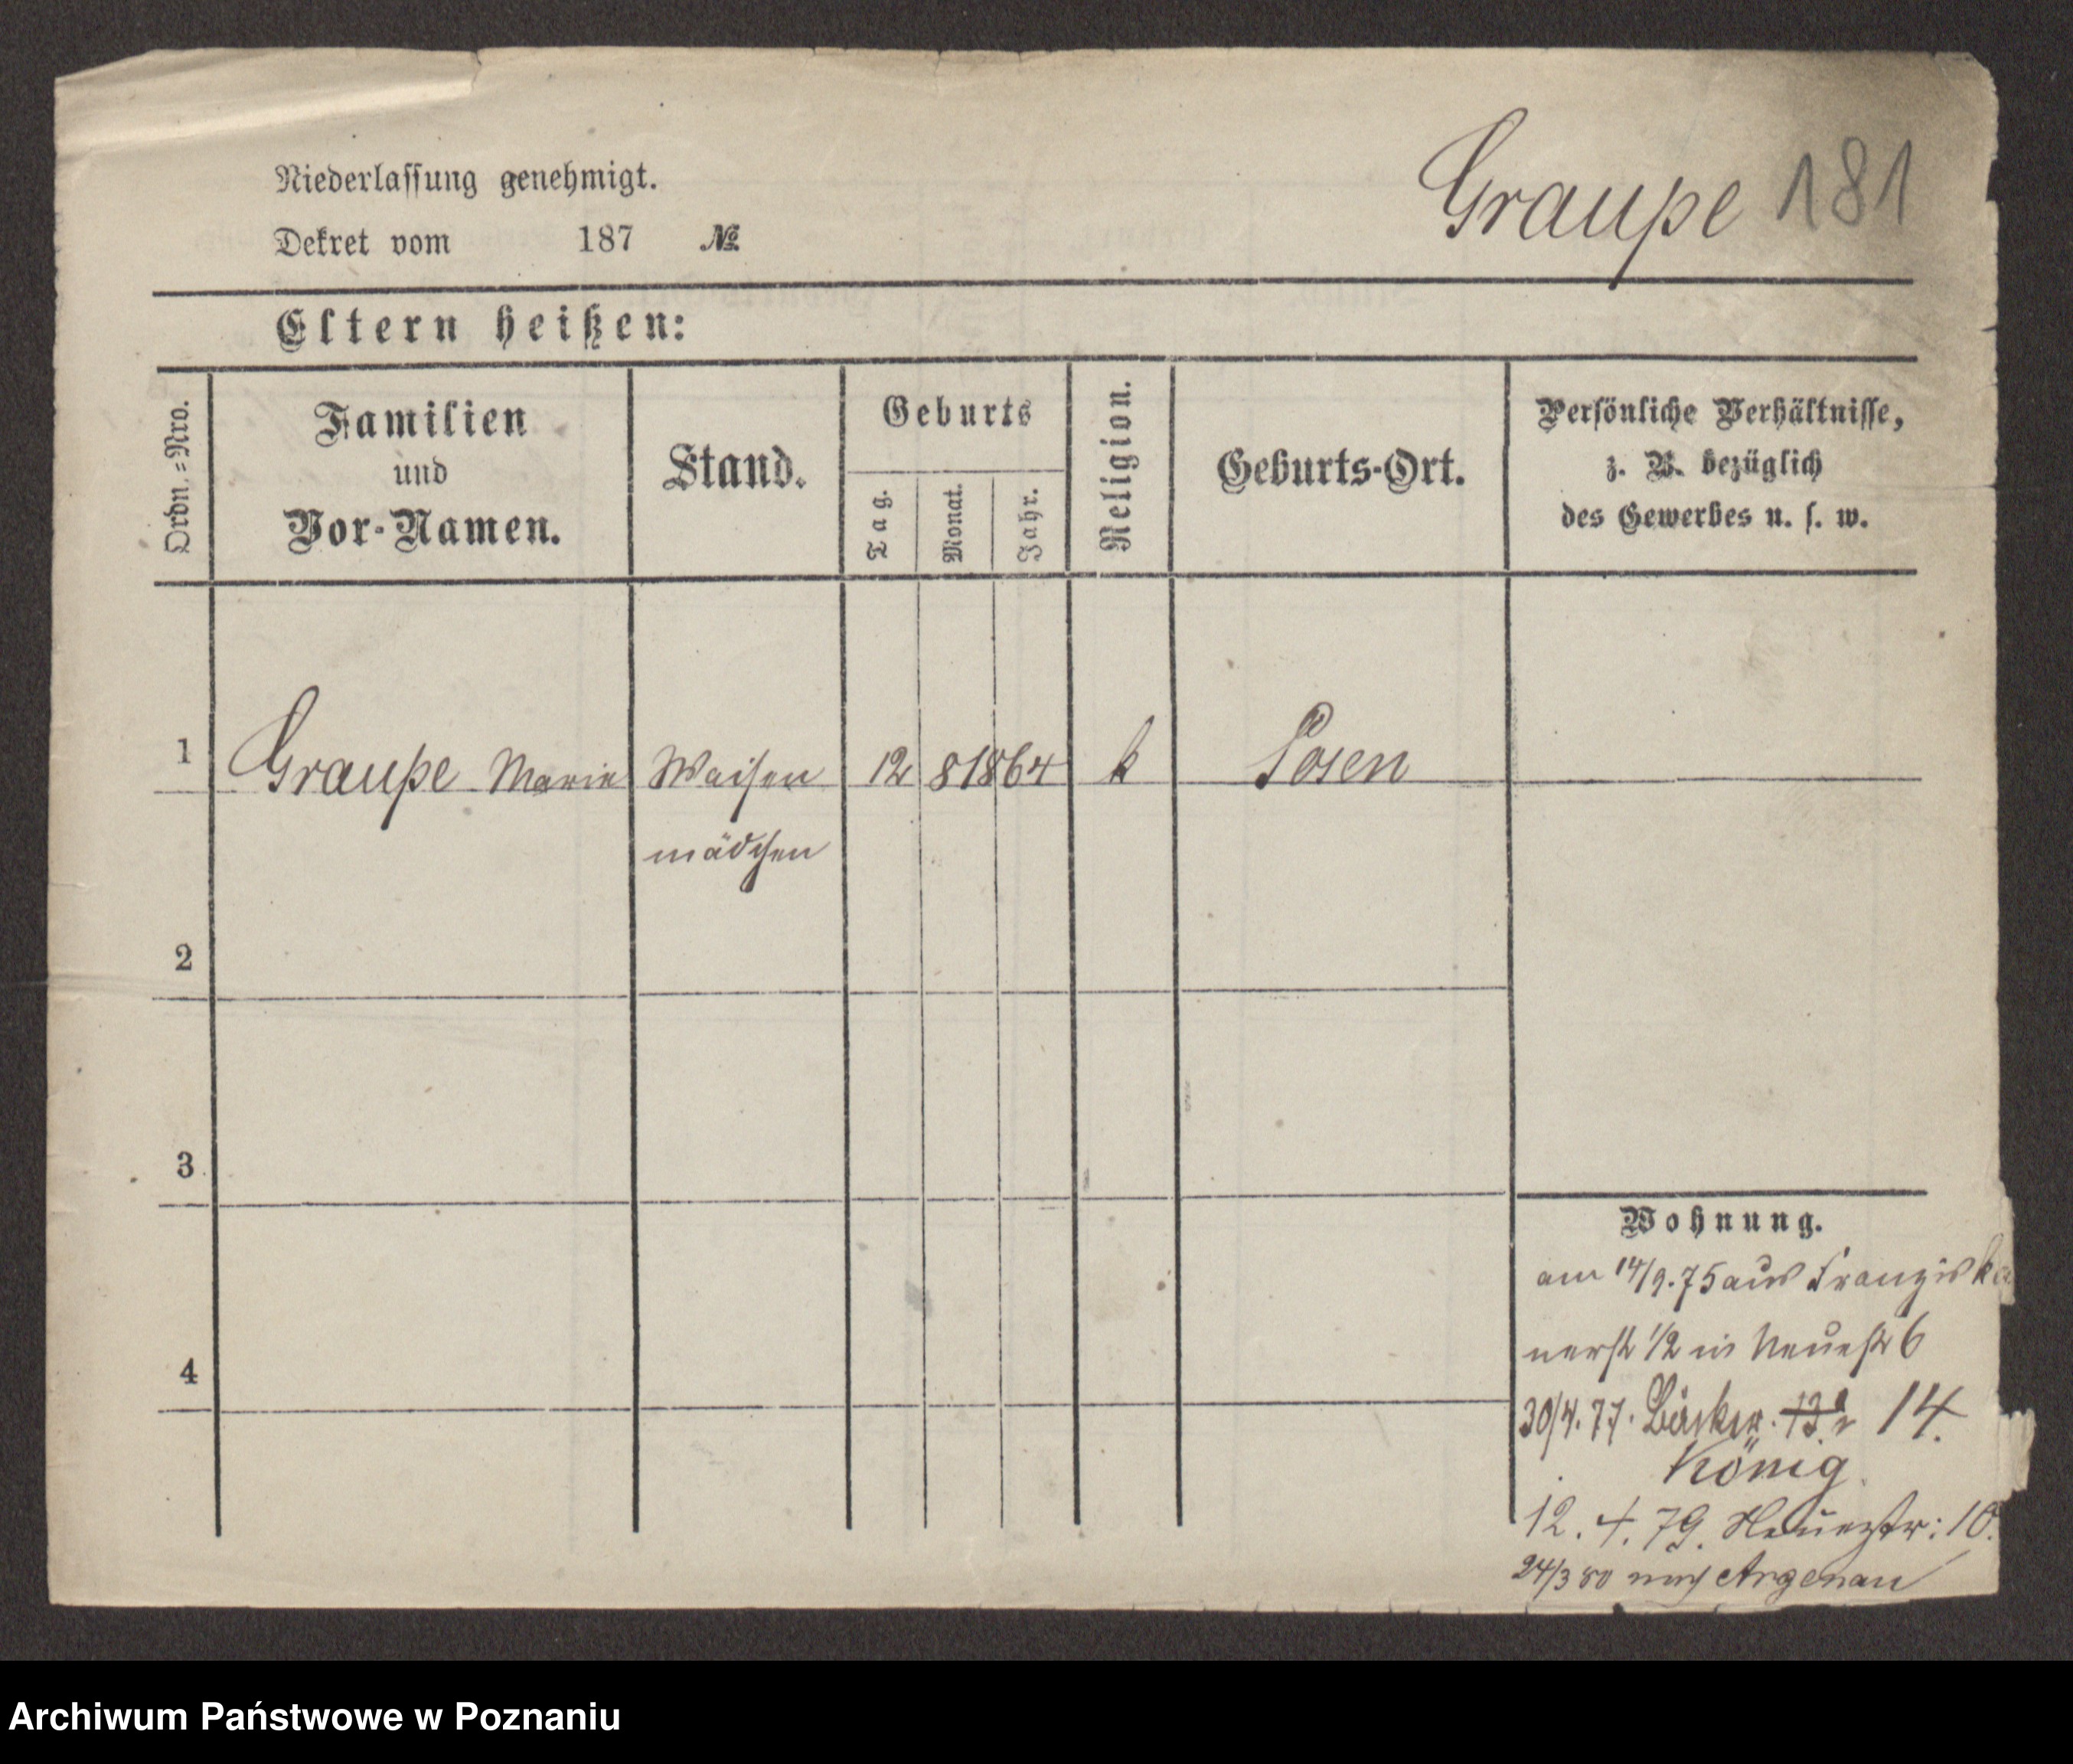 Niederlassung genehmigt.
Dekret vom 187 №
Graupe 181
Eltern heißen:
Ordn.=Nro.
Familien
und
Vor-Namen.
Stand.
Geburts
Tag.
Monat.
Jahr.
Religion.
Geburts-Ort.
Persönliche Verhältnisse,
z. B. bezüglich
des Gewerbes u. s. w.
1 Graupe Marie Waisen 12 8 1864 k Posen
mädchen
2
3
4
Wohnung.
am 14/9. 75 aus Franziska
nerstr 1/2 in Neuestr 6
30/4. 77. Bäcker. 13a 14.
König
12. 4. 79. Neuestr: 10.
24/3 80 nach Argenau
Archiwum Państwowe w Poznaniu